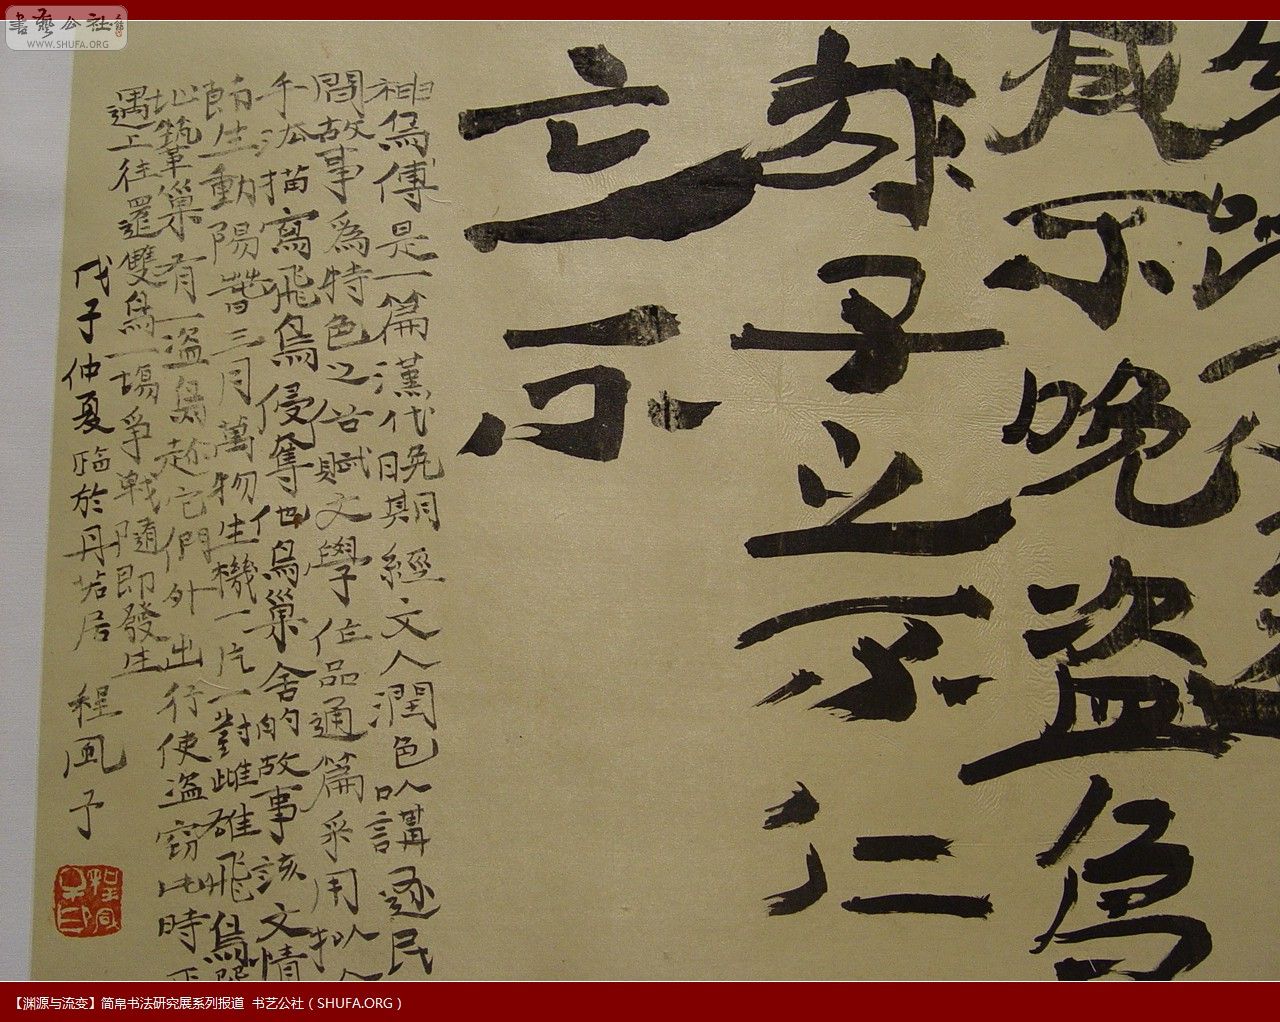 書艺公社
WWW.SHUFA.ORG
咸不晚盜鳥
子立不仁
亡示
神烏傅是一篇漢代晚期經文人潤色以講述民
間故事爲特色之俗賦文學作品通篇采用擬人
手法描寫飛鳥侵奪他鳥巢舍的故事該文情
節生動陽春三月萬物生機一片一對雌雄飛鳥
此筑革巢有一盜鳥趁它們外出行使盜窃此時正
遇上往還雙鳥一場爭戰隨即發生
戊子仲夏臨於丹若居 程風子
【渊源与流变】简帛书法研究展系列报道 书艺公社（SHUFA.ORG）